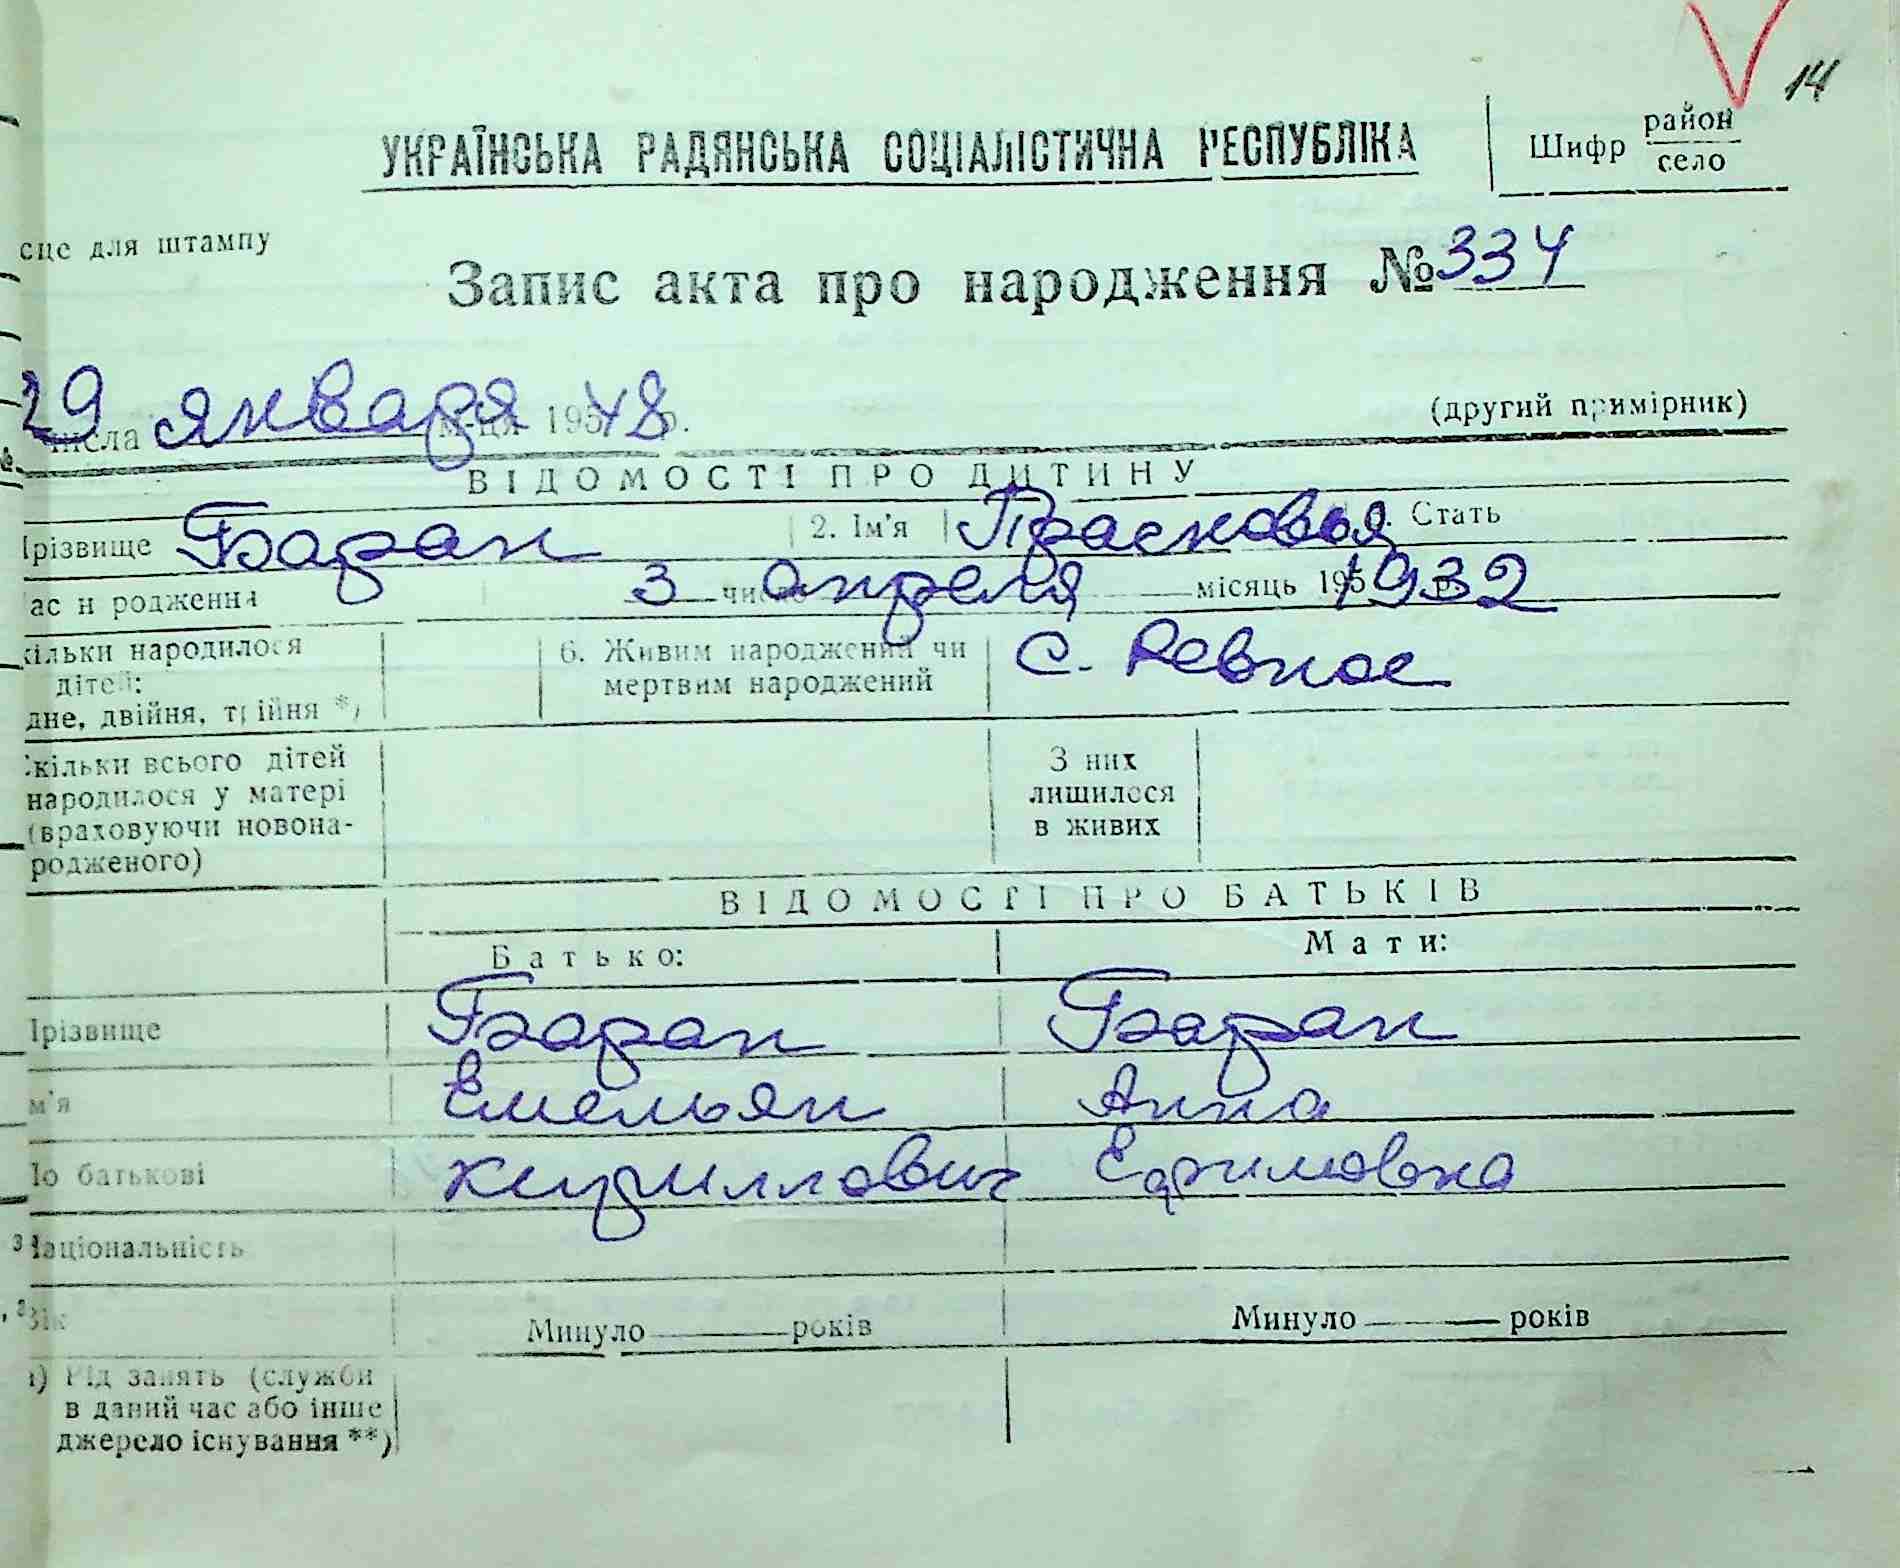 14
УКРАЇНСЬКА РАДЯНСЬКА СОЦІАЛІСТИЧНА РЕСПУБЛІКА
Шифр район
село
сце для штампу
Запис акта про народження № 334
29 числа января м-ця 195 48 р.
(другий примірник)
ВІДОМОСТІ ПРО ДИТИНУ
Прізвище Баран 2. Ім'я Прасковья 3. Стать
ас н родження 3 число апреля місяць 195 1932 р.
кільки народилося
дітей:
дне, двійня, трійня *)
6. Живим народжений чи
мертвим народжений
с. Ревное
Скільки всього дітей
народилося у матері
(враховуючи новона-
родженого)
З них
лишилося
в живих
ВІДОМОСТІ ПРО БАТЬКІВ
Батько: Мати:
Прізвище Баран Баран
м'я Емельян Анна
По батькові Кириллович Ефимовна
Національність
Вік Минуло року років Минуло років
а) Рід занять (служби
в даний час або інше
джерело існування **)